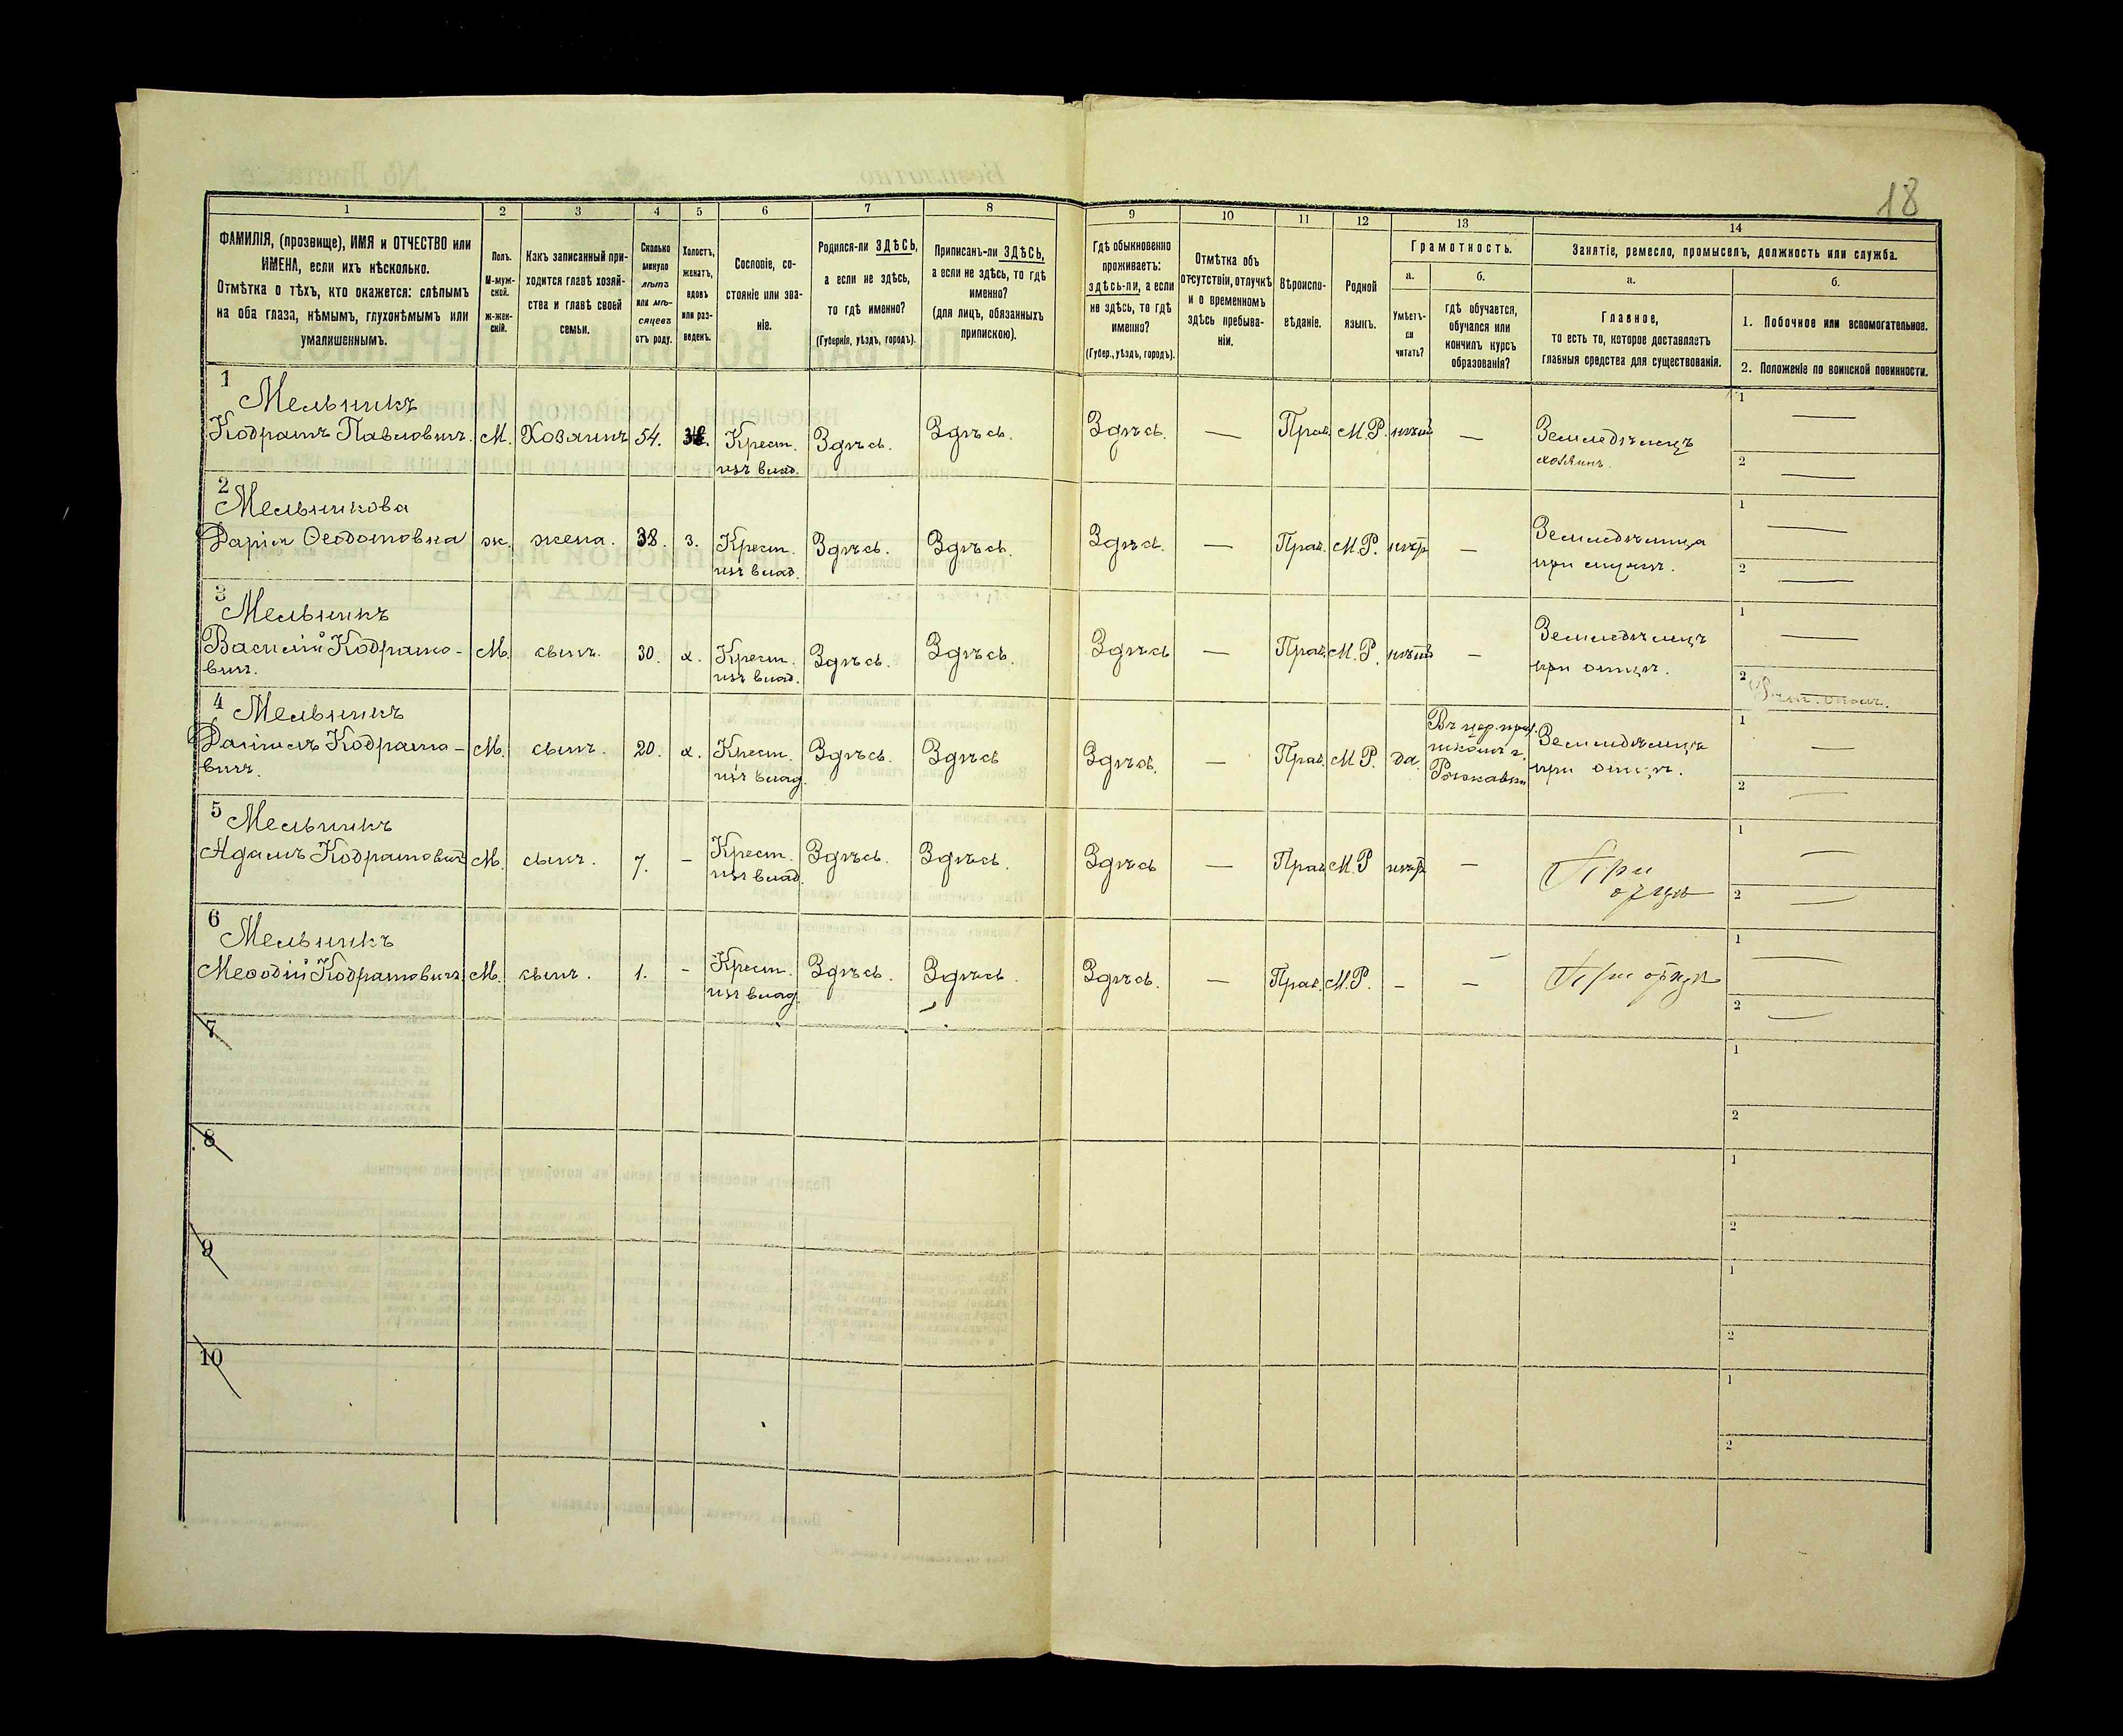 18
1 2 3 4 5 6 7 8 9 10 11 12 13 14
ФАМИЛІЯ, (прозвище), ИМЯ и ОТЧЕСТВО или
ИМЕНА, если ихъ нѣсколько.
Отмѣтка о тѣхъ, кто окажется: слѣпымъ
на оба глаза, нѣмымъ, глухонѣмымъ или
умалишеннымъ.
Полъ.
М-муж-
ской.
Ж-жен-
скій.
Какъ записанный при-
ходится главѣ хозяй-
ства и главѣ своей
семьи.
Сколько
минуло
лѣтъ
или мѣ-
сяцевъ
отъ роду.
Холостъ,
женатъ,
вдовъ
или раз-
веденъ.
Сословіе, со-
стояніе или зва-
ніе.
Родился-ли ЗДѢСЬ,
а если не здѣсь,
то гдѣ именно?
(Губернія, уѣздъ, городъ).
Приписанъ-ли ЗДѢСЬ,
а если не здѣсь, то гдѣ
именно?
(для лицъ, обязанныхъ
припискою).
Гдѣ обыкновенно
проживаетъ:
здѣсь-ли, а если
не здѣсь, то гдѣ
именно?
(Губер., уѣздъ, городъ).
Отмѣтка объ
отсутствіи, отлучкѣ
и о временномъ
здѣсь пребыва-
ніи.
Вѣроиспо-
вѣданіе.
Родной
языкъ.
Грамотность.
а.
Умѣетъ-
ли
читать?
б.
гдѣ обучается,
обучался или
кончилъ курсъ
образованія?
Занятіе, ремесло, промыселъ, должность или служба.
а.
Главное,
то есть то, которое доставляетъ
главныя средства для существованія.
б.
1. Побочное или вспомогательное.
2. Положеніе по воинской повинности.
1
Мельникъ
Кодратъ Павловичъ. М. Хозяинъ 54. Крест. Здѣсь. Здѣсь. Здѣсь. — Прав. М.Р. нѣтъ — Земледѣлецъ 1 —
изъ влад. хозяинъ. 2 —
2
Мельникова
Дарія Ѳеодотовна ж. жена. 38. з. Крест. Здѣсь. Здѣсь. Здѣсь. — Прав. М.Р. нѣтъ — Земледѣлица 1 —
изъ влад. при мужѣ. 2 —
3
Мельникъ
Василій Кодрато- М. сынъ. 30. х. Крест. Здѣсь. Здѣсь. Здѣсь — Прав. М.Р. нѣтъ — Земледѣлецъ 1 —
вичъ. изъ влад. при отцѣ. 2
4
Мельникъ
Даніилъ Кодрато- М. сынъ. 20. х. Крест. Здѣсь. Здѣсь Здѣсь. — Прав. М.Р. да. Въ цер. прих. Земледѣлецъ 1 —
вичъ. изъ влад. при отцѣ. 2 —
5
Мельникъ
Адамъ Кодратовичъ М. сынъ. 7. — Крест. Здѣсь. Здѣсь. Здѣсь — Прав М.Р нѣтъ — При 1 —
изъ влад. отцѣ 2 —
6
Мельникъ
Меѳодій Кодратовичъ. М. сынъ. 1. — Крест. Здѣсь. Здѣсь. Здѣсь. — Прав. М.Р. — — При отцѣ 1 —
изъ влад. 2 —
7 1
2
8 1
2
9 1
2
10 1
2